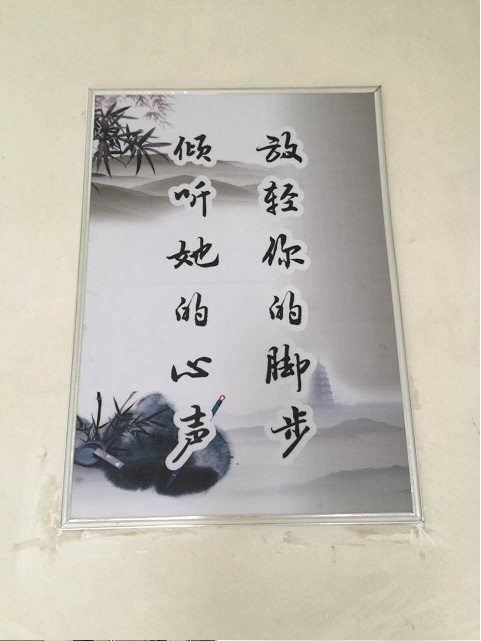 放轻你的脚步
倾听她的心声